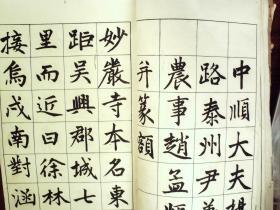 中順大夫揚
路泰州尹兼
農事趙孟頫
并篆額
妙嚴寺本名東
距吳興郡城七
里而近曰徐林
接烏戍南對涵